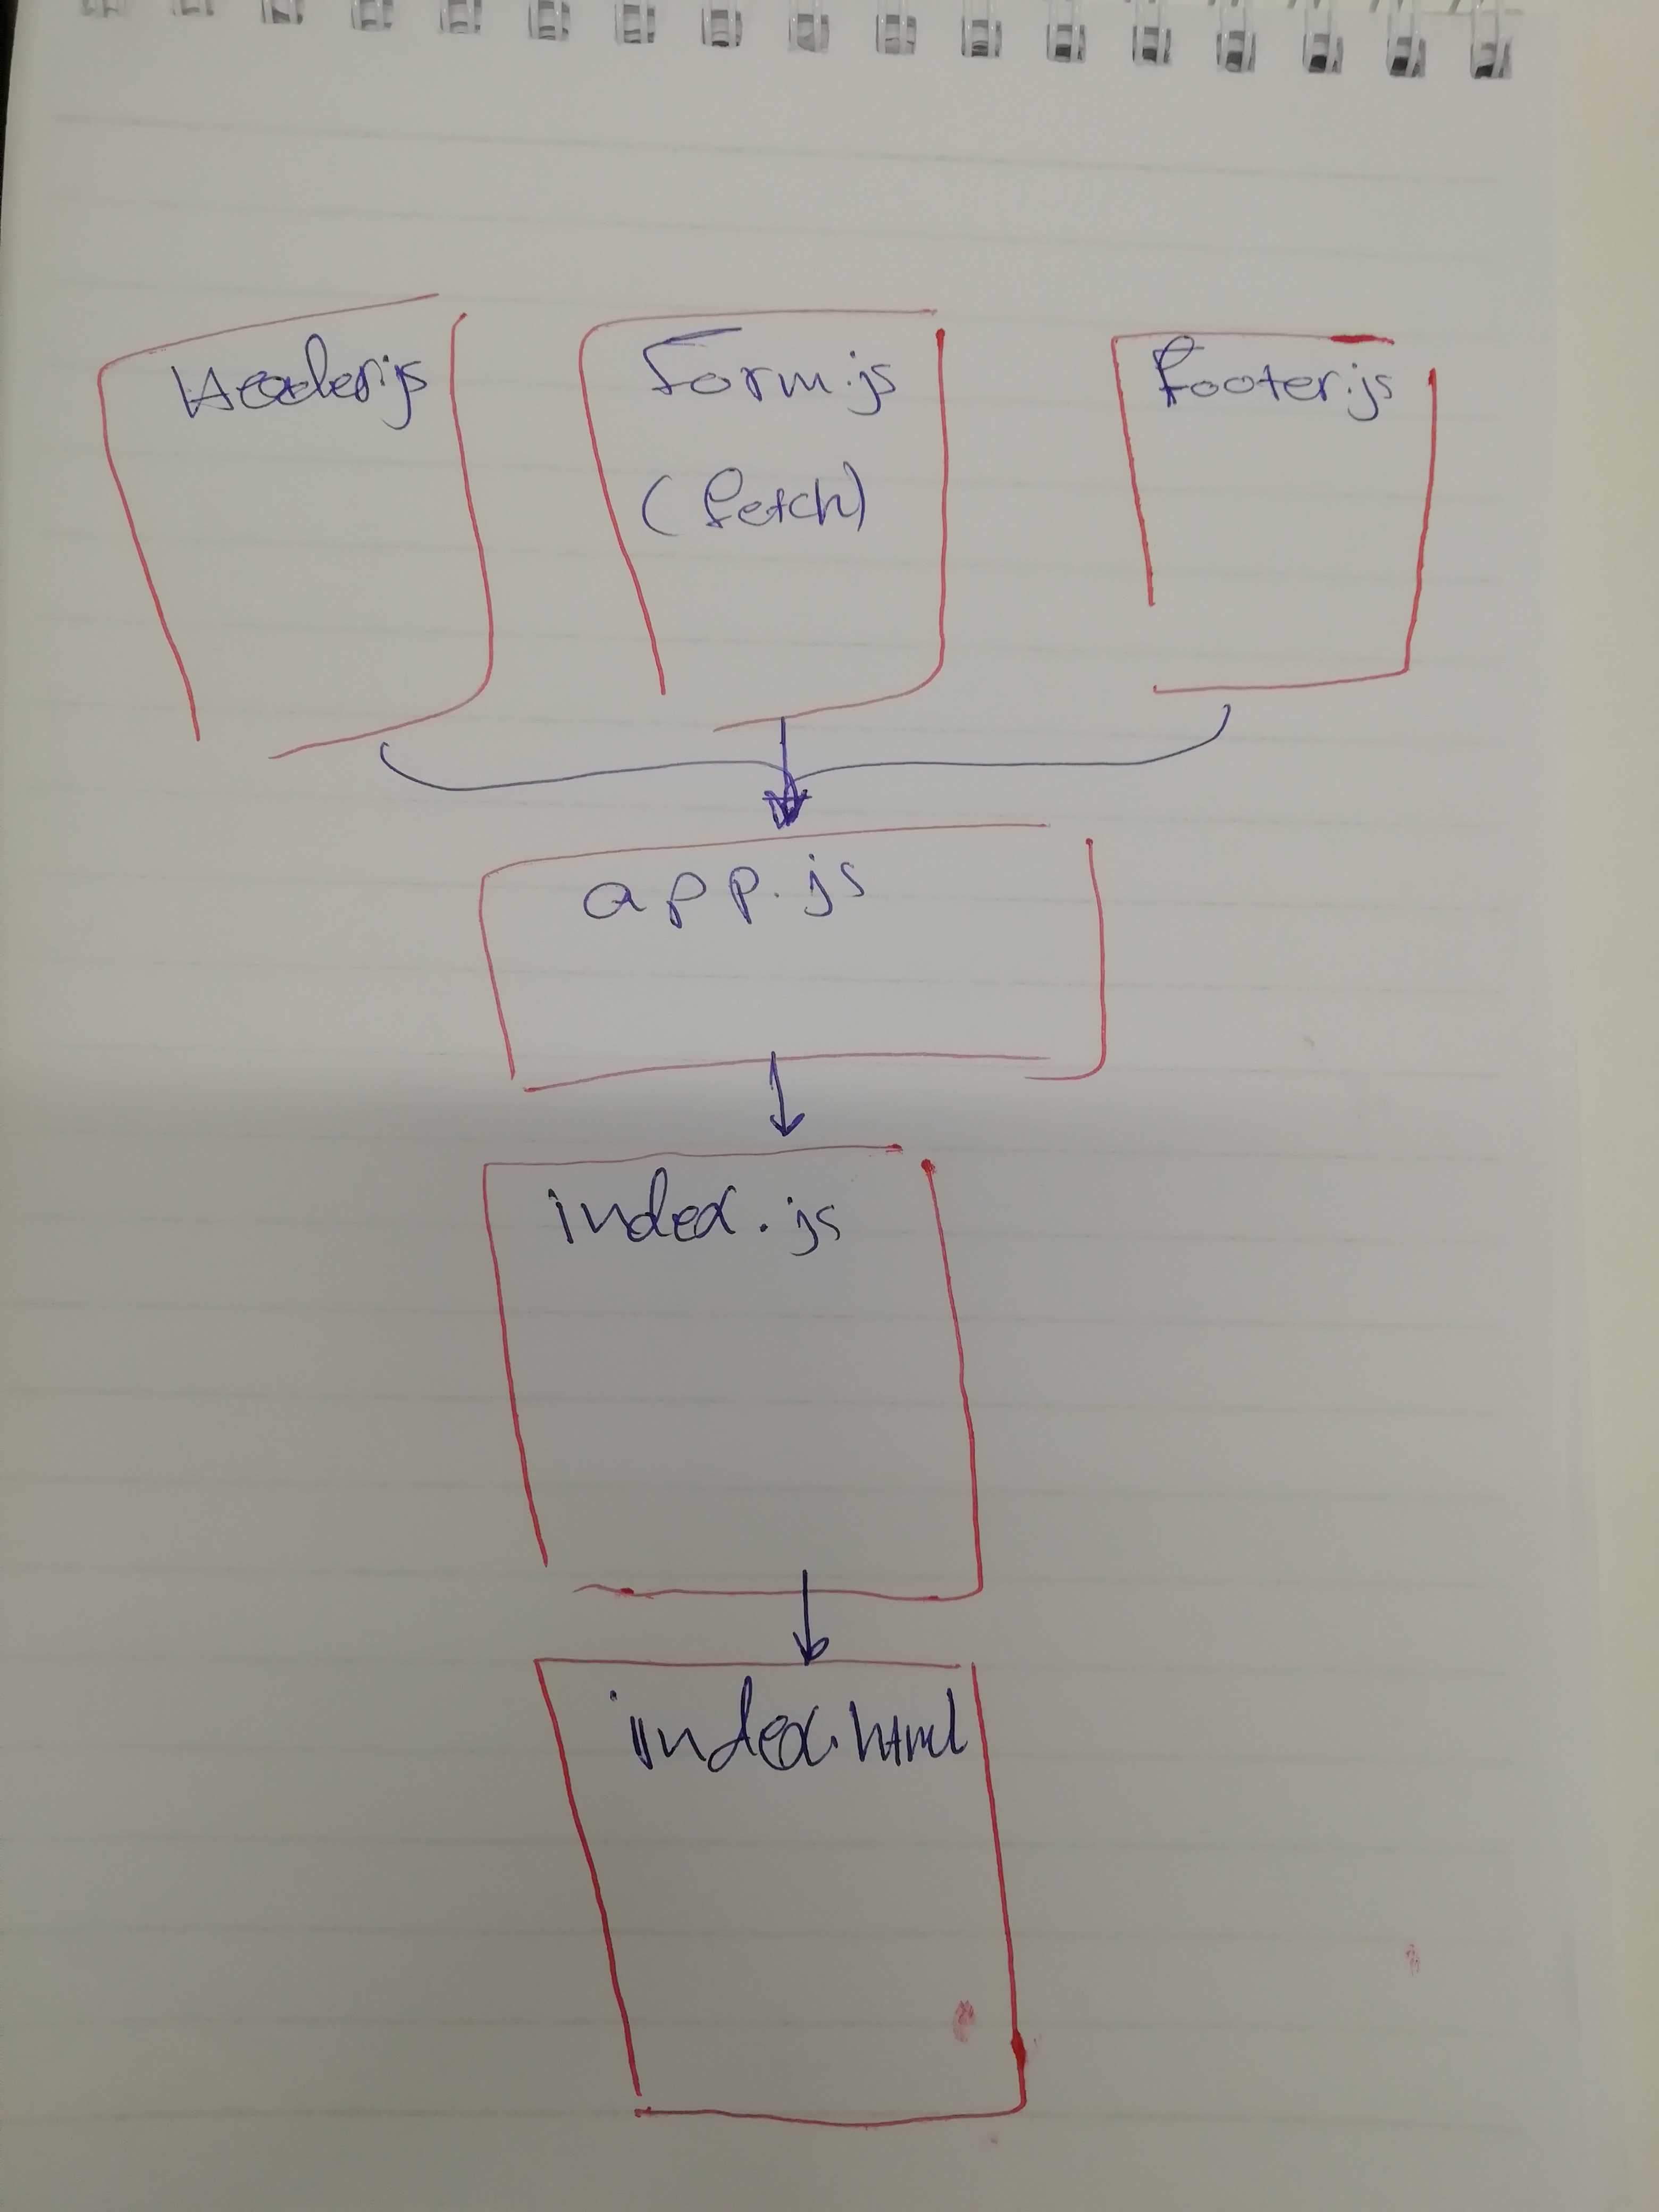 Header.js
Form.js
(fetch)
footer.js
app.js
index.js
index.html